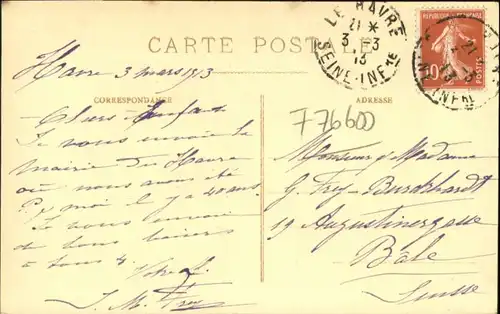 CARTE POSTALE
LE HAVRE
21 *
3 - 3
13
SEINE-INFRE
REPUBLIQUE FRANÇAISE
10c
POSTES
Havre 3 mars 1913
CORRESPONDANCE
ADRESSE
776600
Chers Enfants
Je vous envoie la
mairie du Havre
où nous avons été
moi il y a 40 ans
Je vous envoie
de bons baisers
à tous 4.
Votre
J. M. Frey
Monsieur & Madame
G. Frey-Burckhardt
19 Augustinergasse
Bâle
Suisse